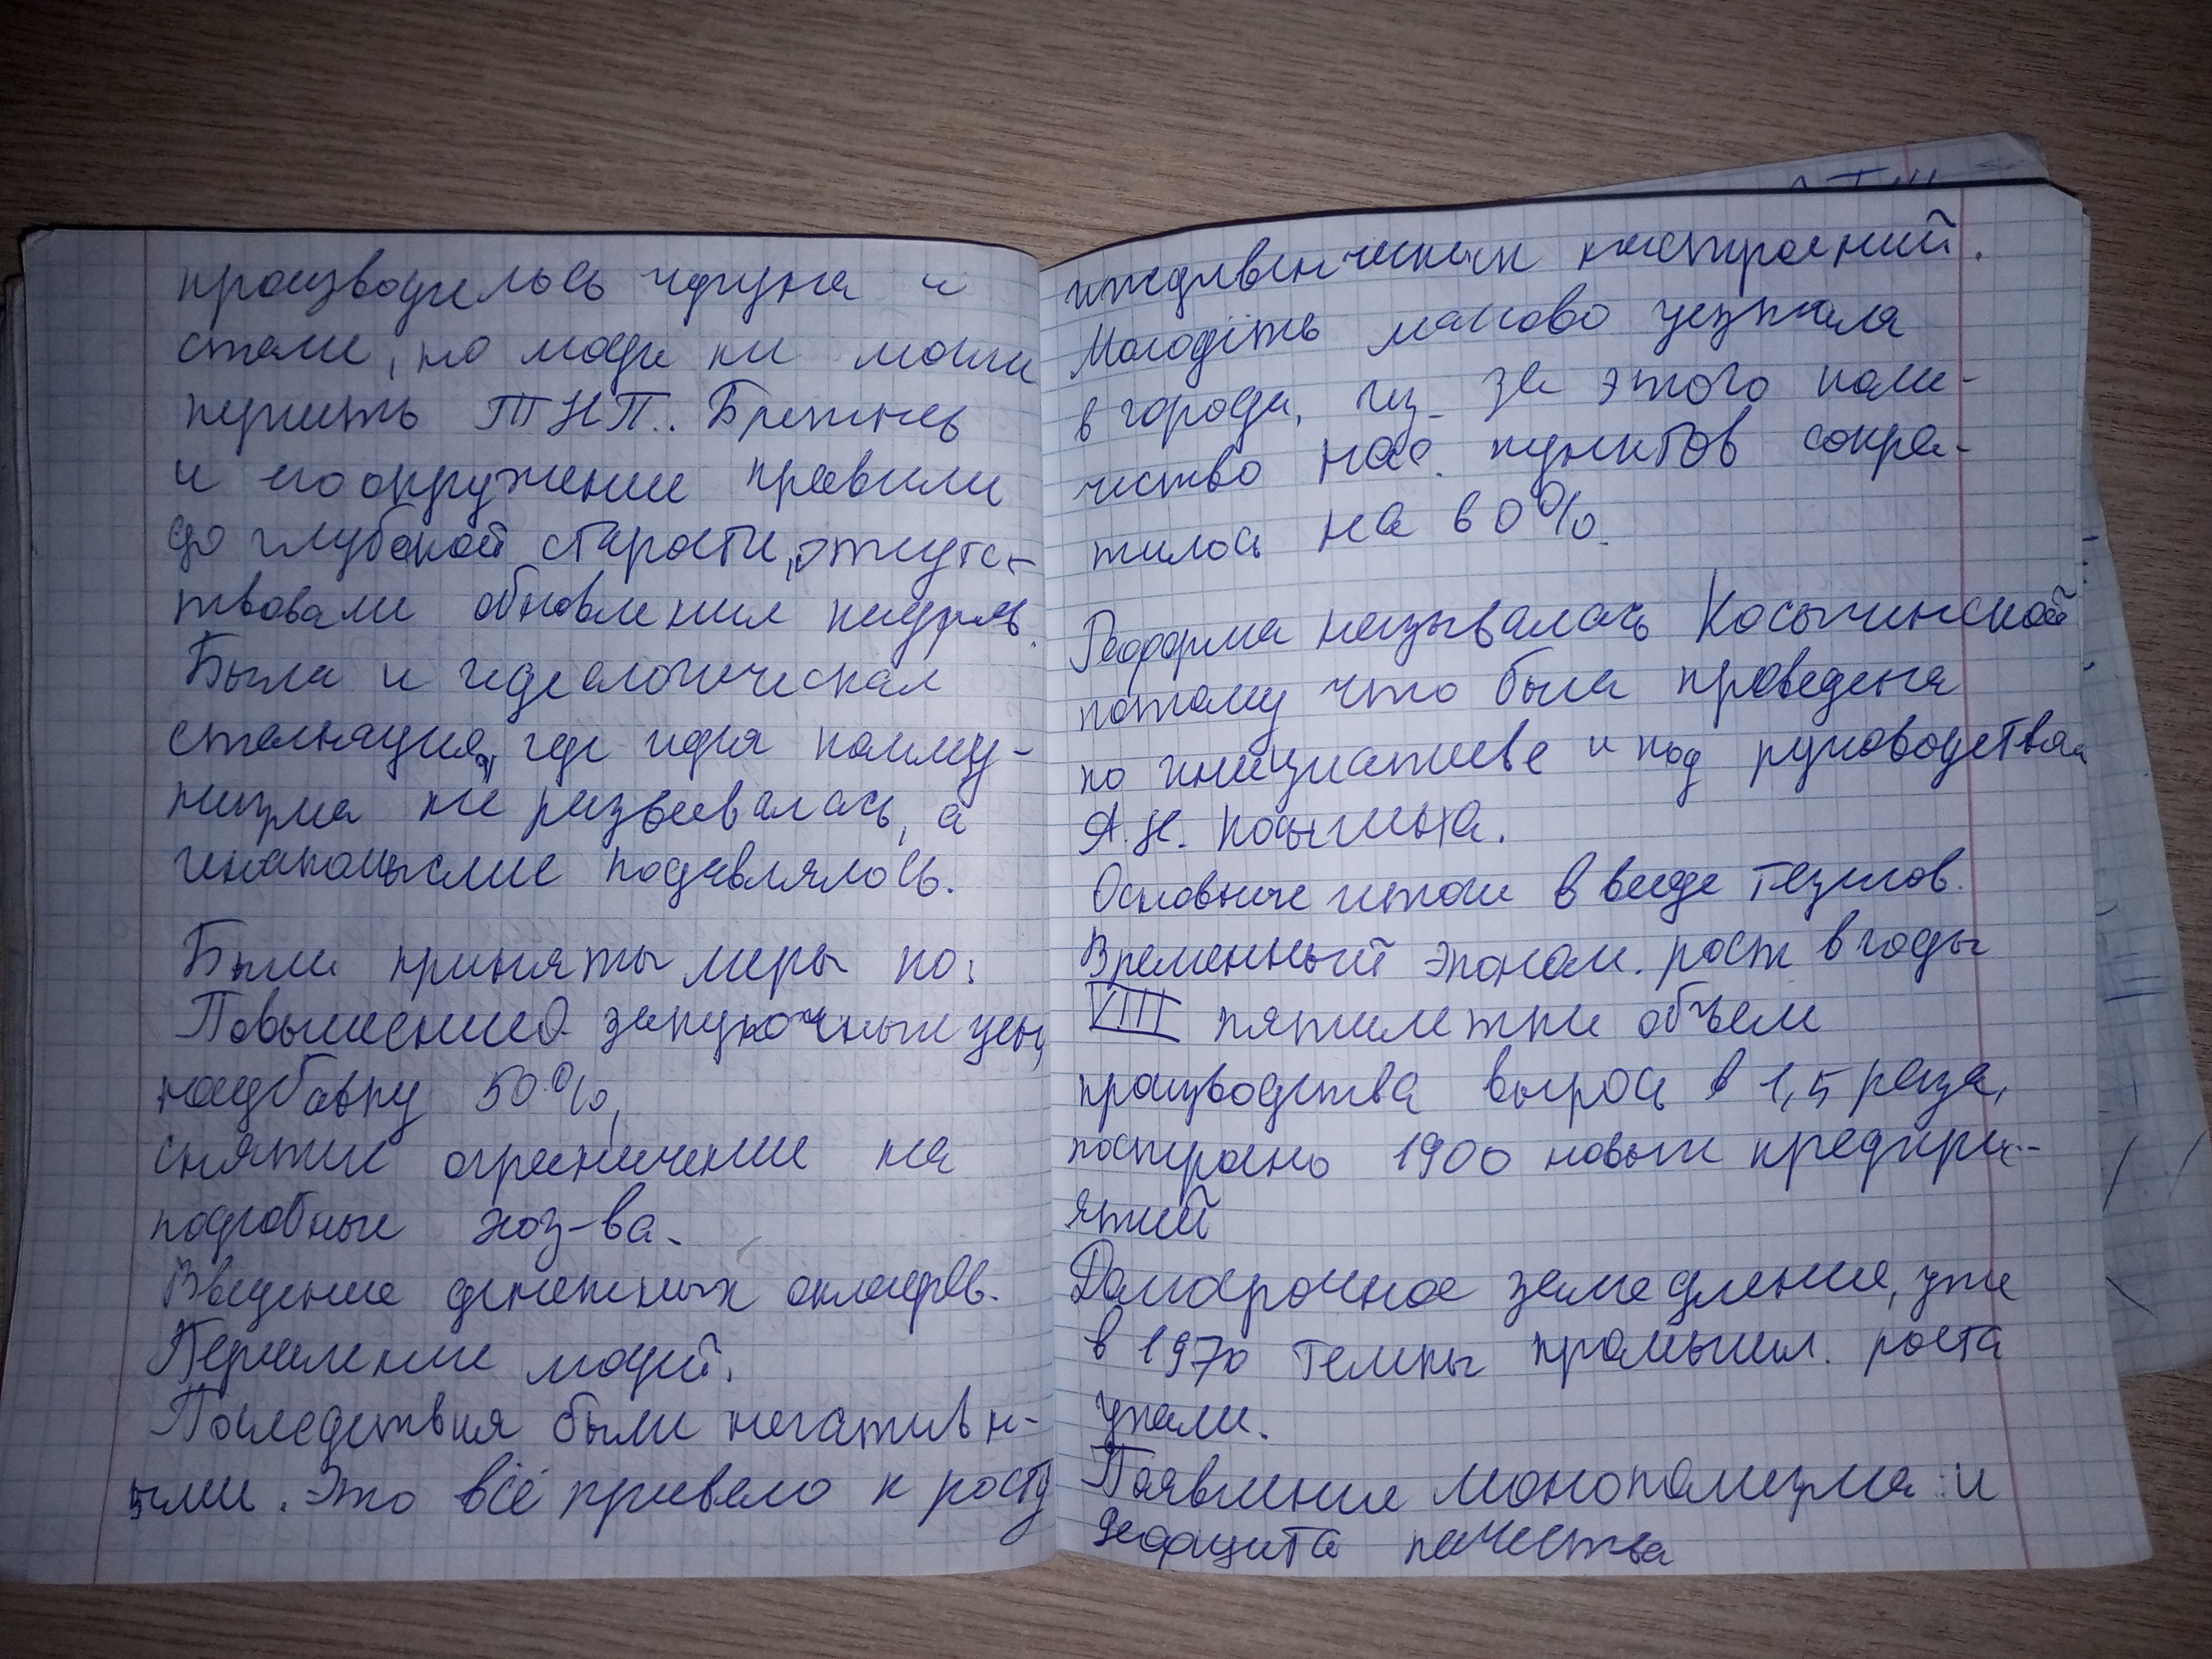 производилось чугуна и
стали, но люди не могли
купить ТНП.. Брежнев
и его окружение правили
до глубокой старости, отсутс-
твовали обновления кадров.
Была и идеологическая
стагнация, где идея комму-
низма не развевалась, а
инакомыслие подавлялось.
Были приняты меры по:
Повышению закупочных цен,
надбавку 50%,
снятие ограничение на
подсобные хоз-ва.
Введение денежных окладов.
Переселение людей.
Последствия были негативн-
ыми. Это всё привело к росту
иждивенческих настроений.
Молодёжь массово уезжала
в города, из-за этого коли-
чество нас. пунктов сокра-
тилось на 60%.
Реформа называлась Косыгинской
потому что была проведена
по инициативе и под руководством
А.Н. Косыгина.
Основные итоги в виде тезисов.
Временный эконом. рост в годы
VIII пятилетки объем
производства вырос в 1,5 раза,
построено 1900 новых предпри-
ятий
Долгосрочное замедление, уже
в 1970 темпы промышл. роста
упали.
Появление монополизма и
дефицита качества